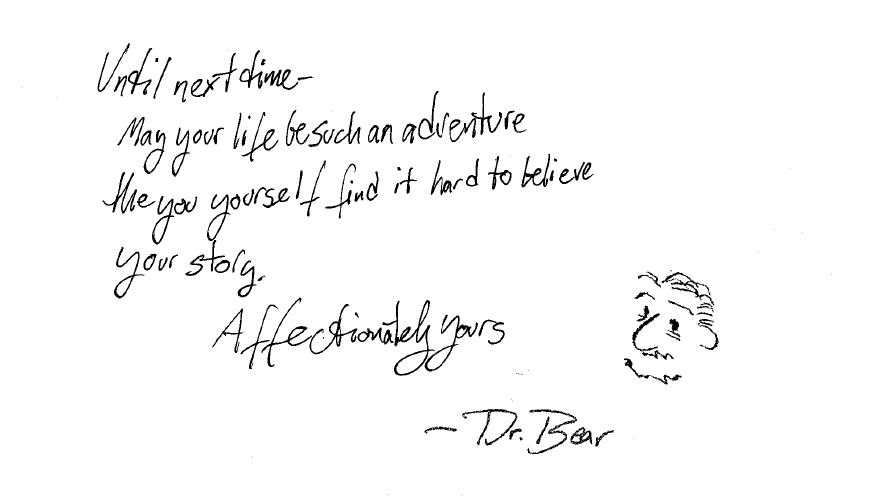 Until next time-
May your life be such an adventure
the you yourself find it hard to believe
your story.
Affectionately yours
- Dr. Bear